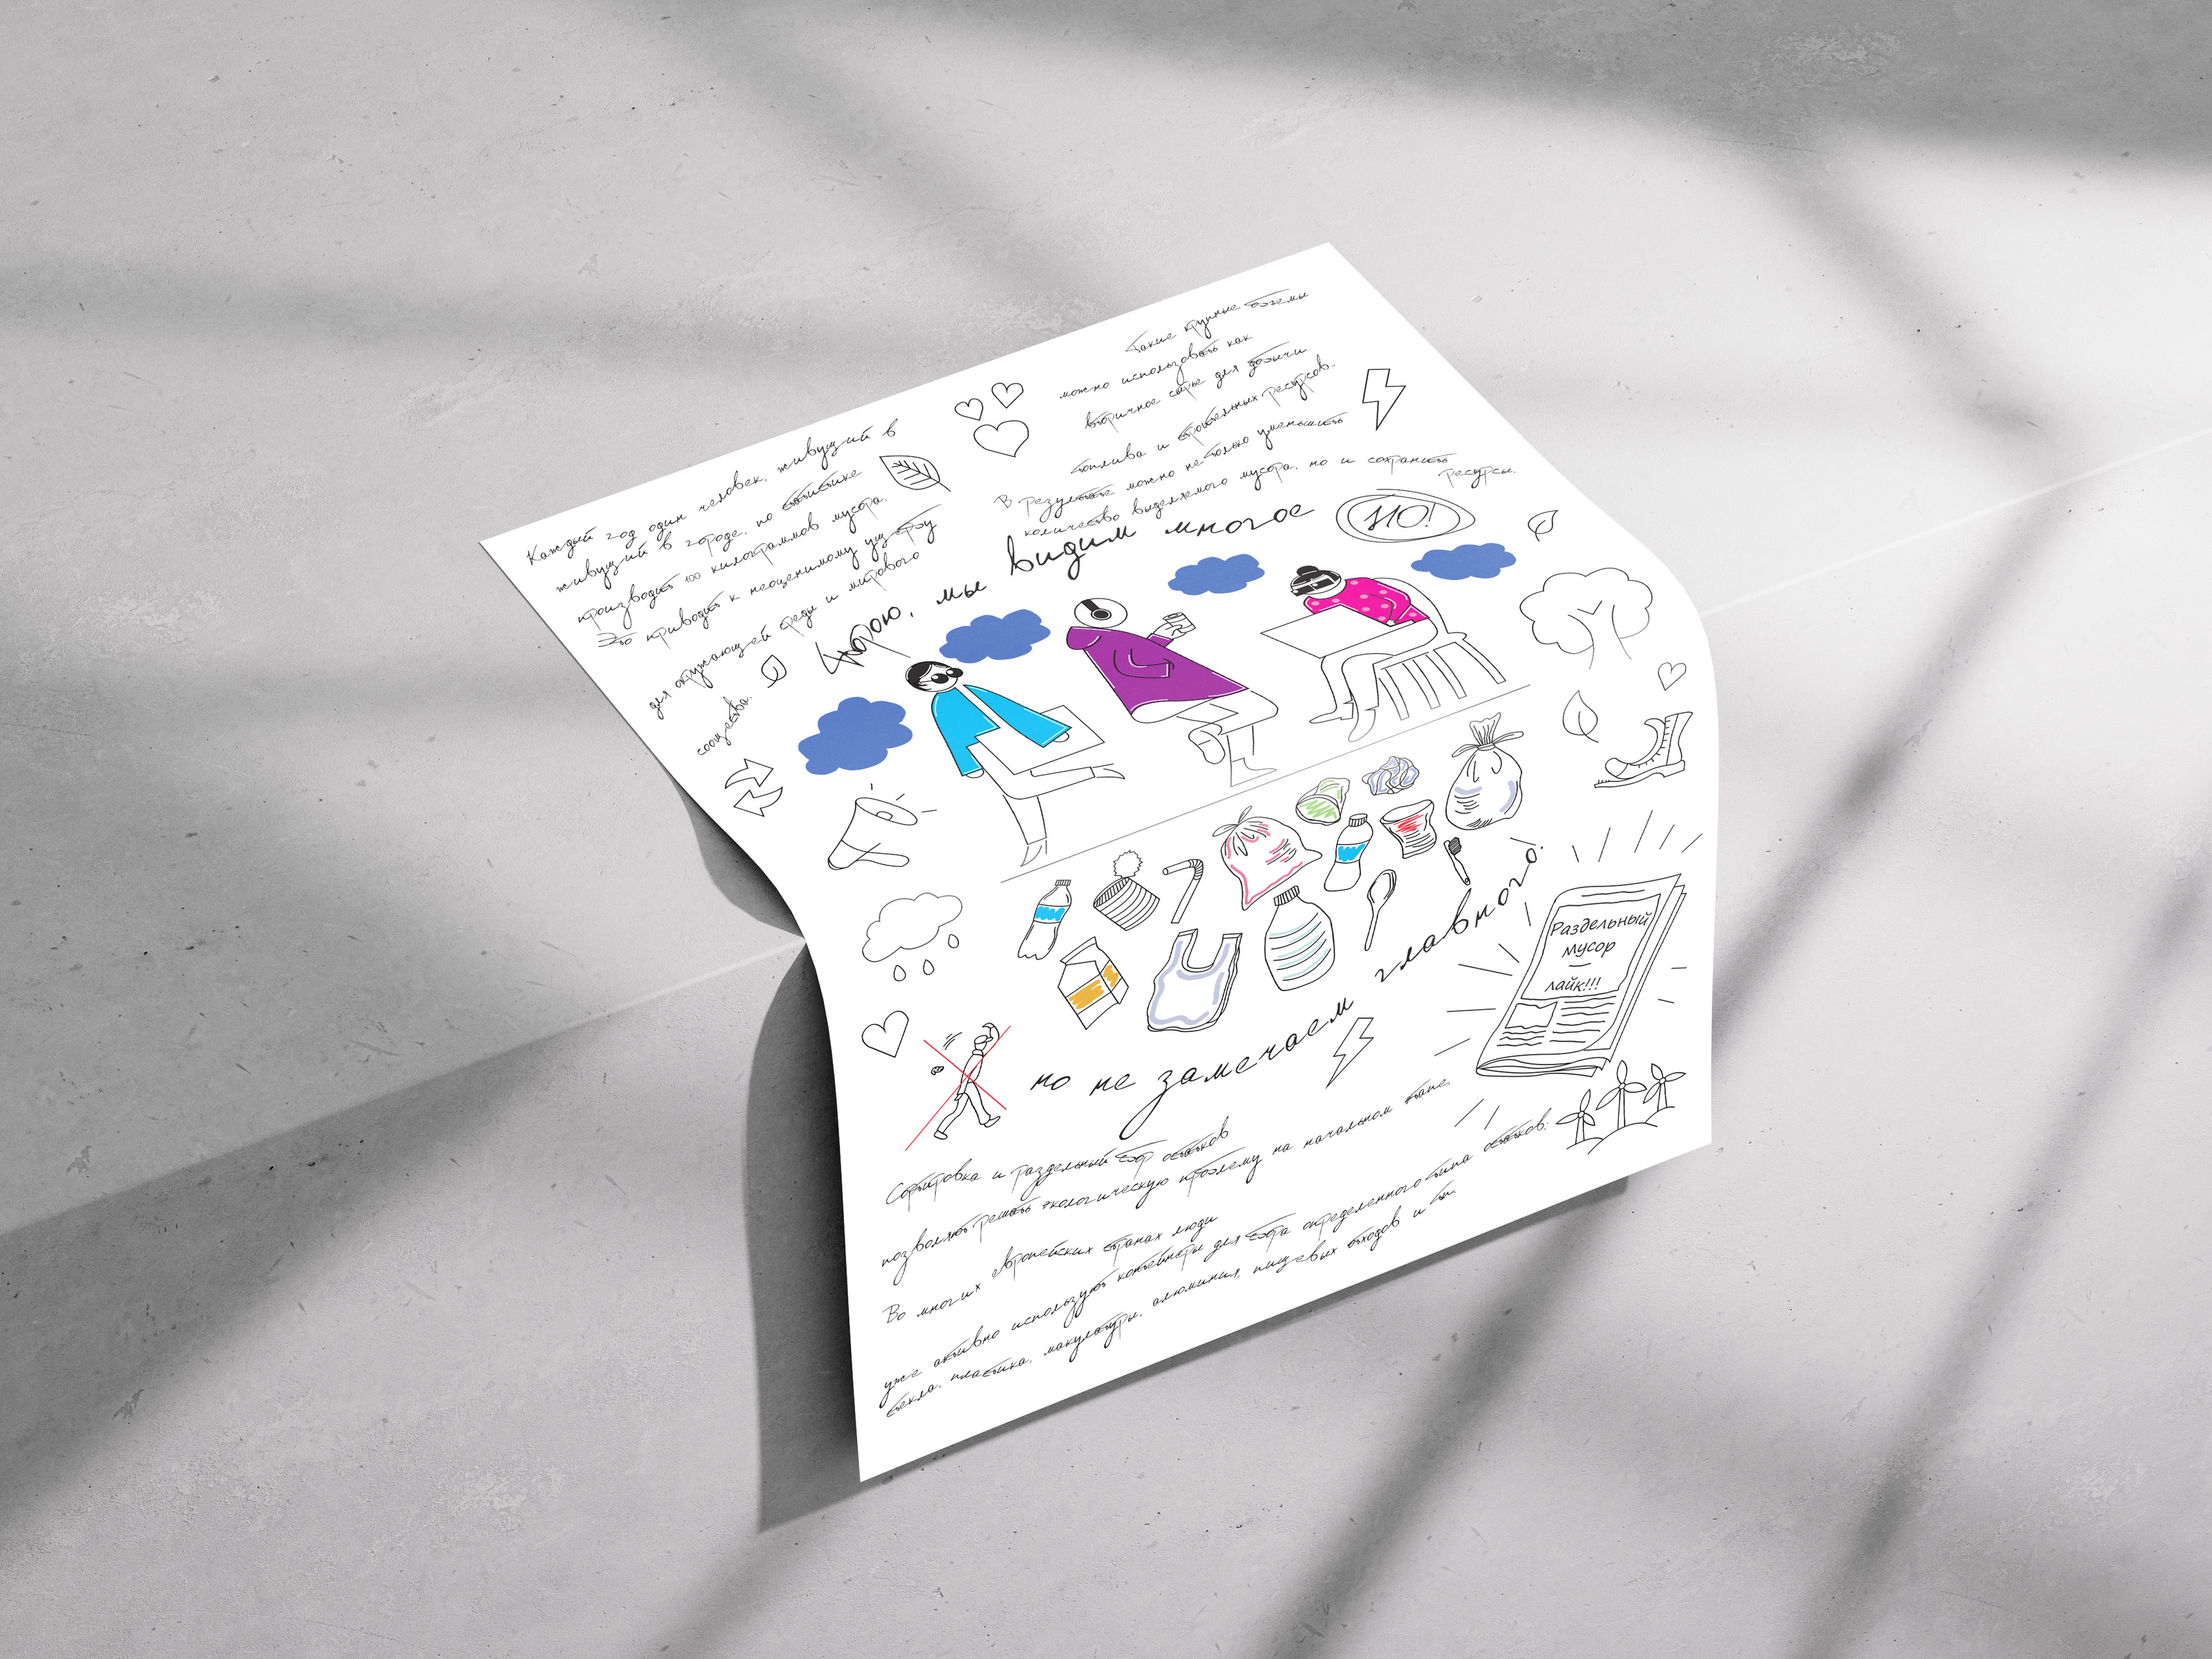 Каждый год один человек, живущий в
живущий в городе, по статистике
производит 100 килограммов мусора.
Это приводит к неоценимому ущербу
для окружающей среды и мирового
сообщества.
Такие крупные объемы
можно использовать как
вторичное сырье для добычи
топлива и строительных ресурсов.
В результате можно не только уменьшить
количество выделяемого мусора, но и сохранить
ресурсы.
Порою, мы видим многое НО!
но не замечаем главного!
Раздельный
мусор
—
лайк!!!
Сортировка и раздельный сбор отходов
позволяют решать экологическую проблему на начальном этапе.
Во многих европейских странах люди
уже активно используют контейнеры для сбора определенного типа отходов:
стекла, пластика, макулатуры, алюминия, пищевых отходов и т.п.